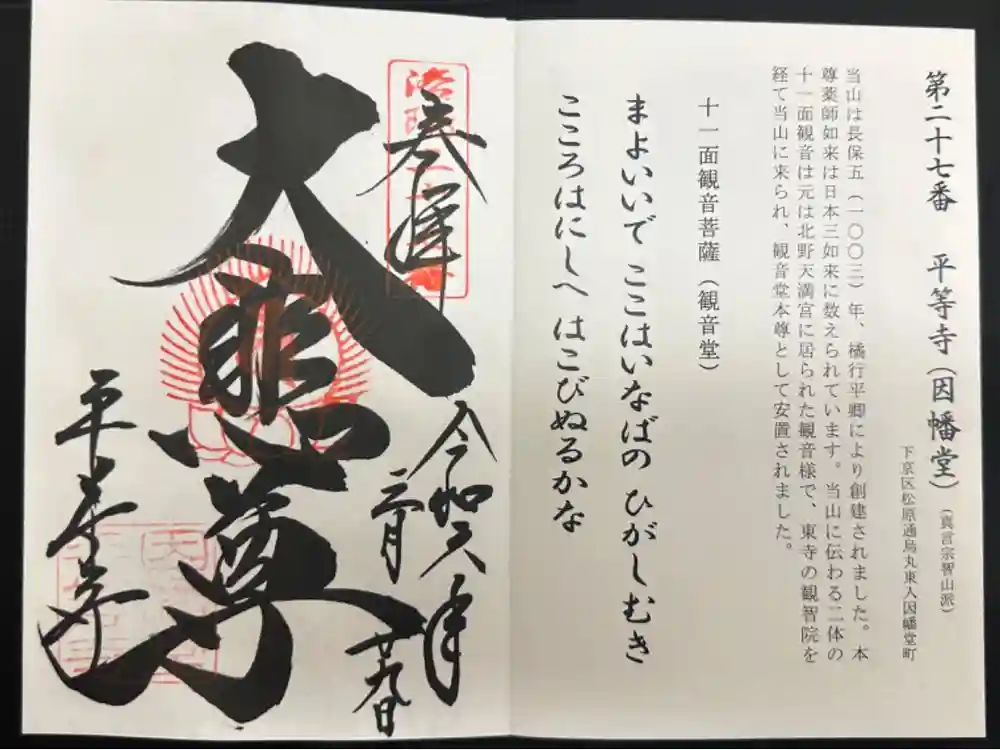 第二十七番 平等寺(因幡堂)(真言宗智山派)
下京区松原通烏丸東入因幡堂町
当山は長保五(一〇〇三)年、橘行平卿により創建されました。本
尊薬師如来は日本三如来に数えられています。当山に伝わる二体の
十一面観音は元は北野天満宮に居られた観音様で、東寺の観智院を
経て当山に来られ、観音堂本尊として安置されました。
十一面観音菩薩(観音堂)
まよいいで ここはいなばの ひがしむき
こころはにしへ はこびぬるかな
奉拝
令和六年
二月
廿九日
大悲尊
平等寺